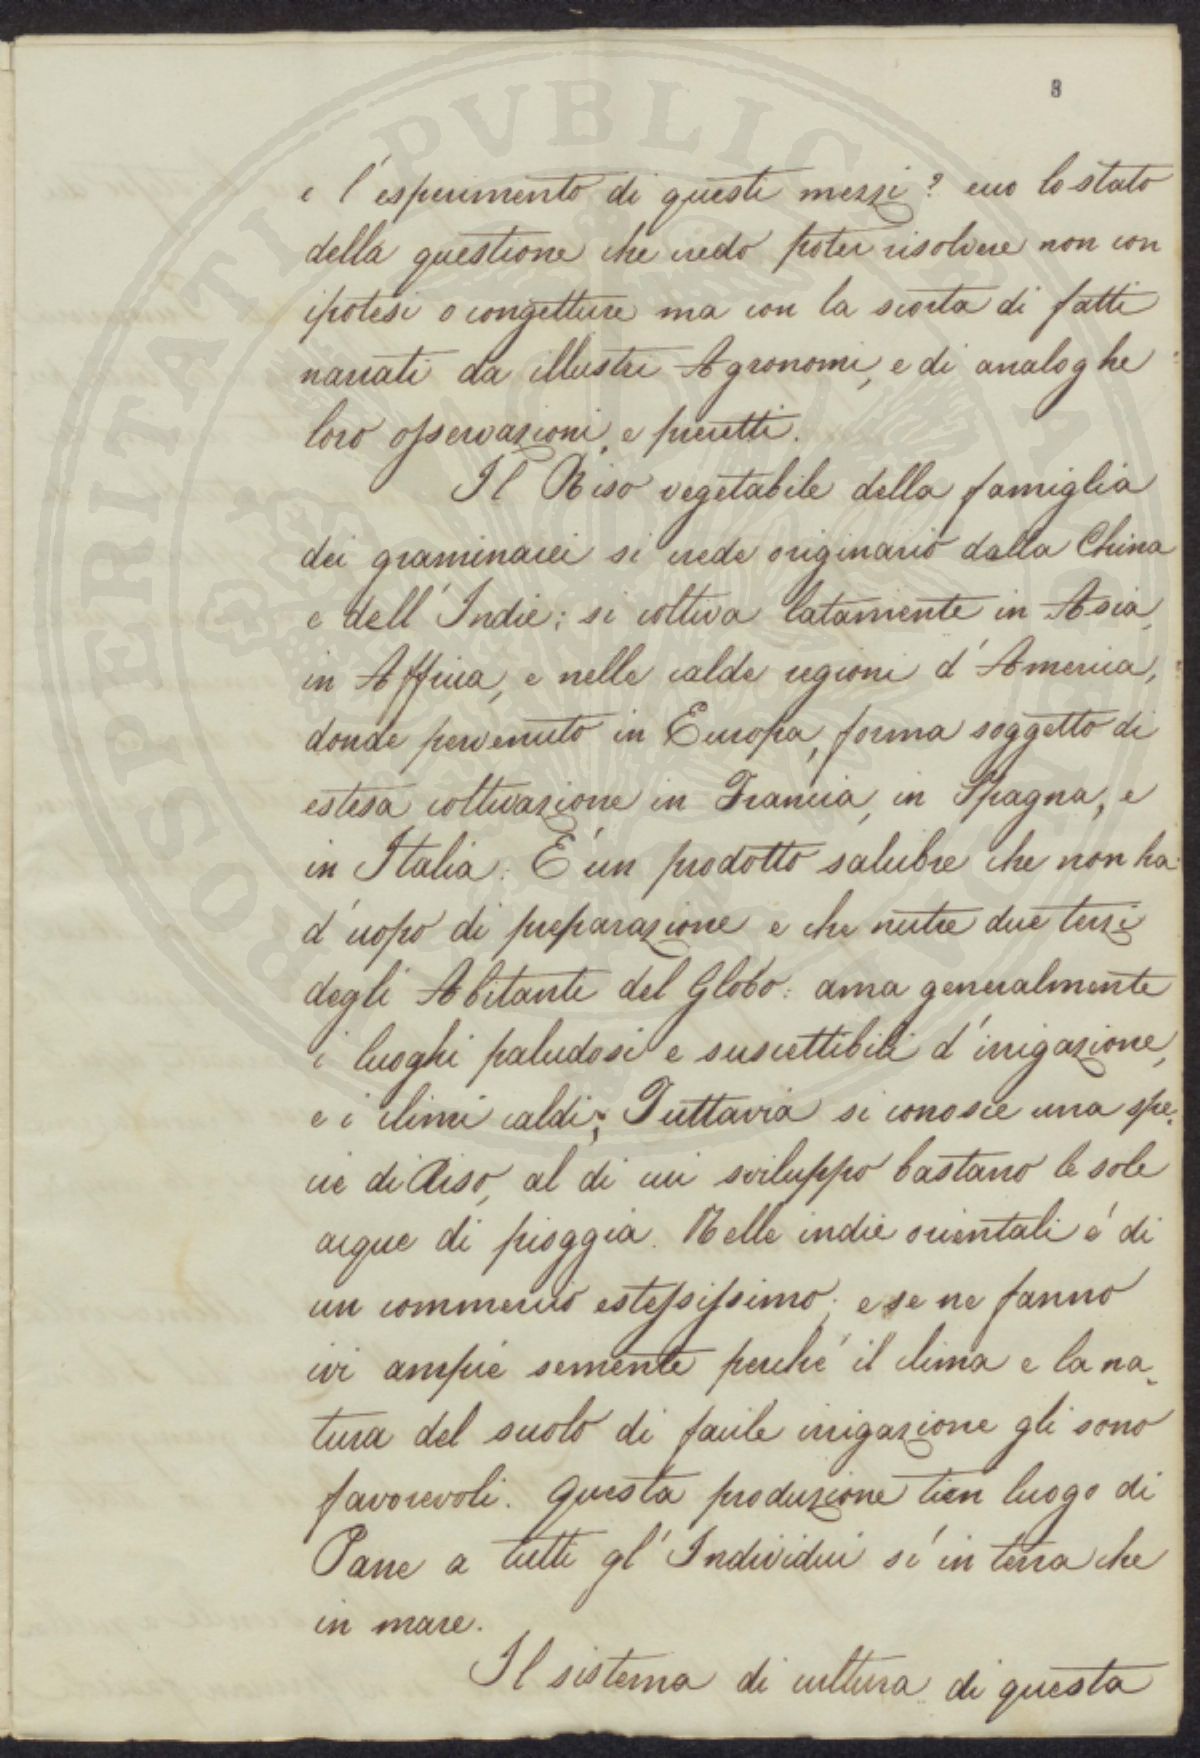 8
e l'esperimento di questi mezzi? ecco lo stato
della questione che credo poter risolvere non con
ipotesi o congetture ma con la scorta di fatti
narrati da illustri Agronomi, e di analoghe
loro osservazioni, e precetti.
Il Riso vegetabile della famiglia
dei graminacei si crede originario dalla China
e dell'Indie; si coltiva latamente in Asia,
in Affrica, e nelle calde regioni d'America,
donde pervenuto in Europa, forma soggetto di
estesa coltivazione in Francia, in Spagna, e
in Italia. E' un prodotto salubre che non ha
d'uopo di preparazione e che nutre due terzi
degli Abitanti del Globo: ama generalmente
i luoghi paludosi e suscettibili d'irrigazione,
e i climi caldi; Tuttavia si conosce una spe-
cie di Riso, al di cui sviluppo bastano le sole
acque di pioggia. Nelle indie orientali é di
un commercio estesissimo; e se ne fanno
ivi ampie semente perché il clima e la na-
tura del suolo di facile irrigazione gli sono
favorevoli. Questa produzione tien luogo di
Pane a tutti gl'Individui sí in terra che
in mare.
Il sistema di cultura di questa
PROSPERITATI PVBLICAE